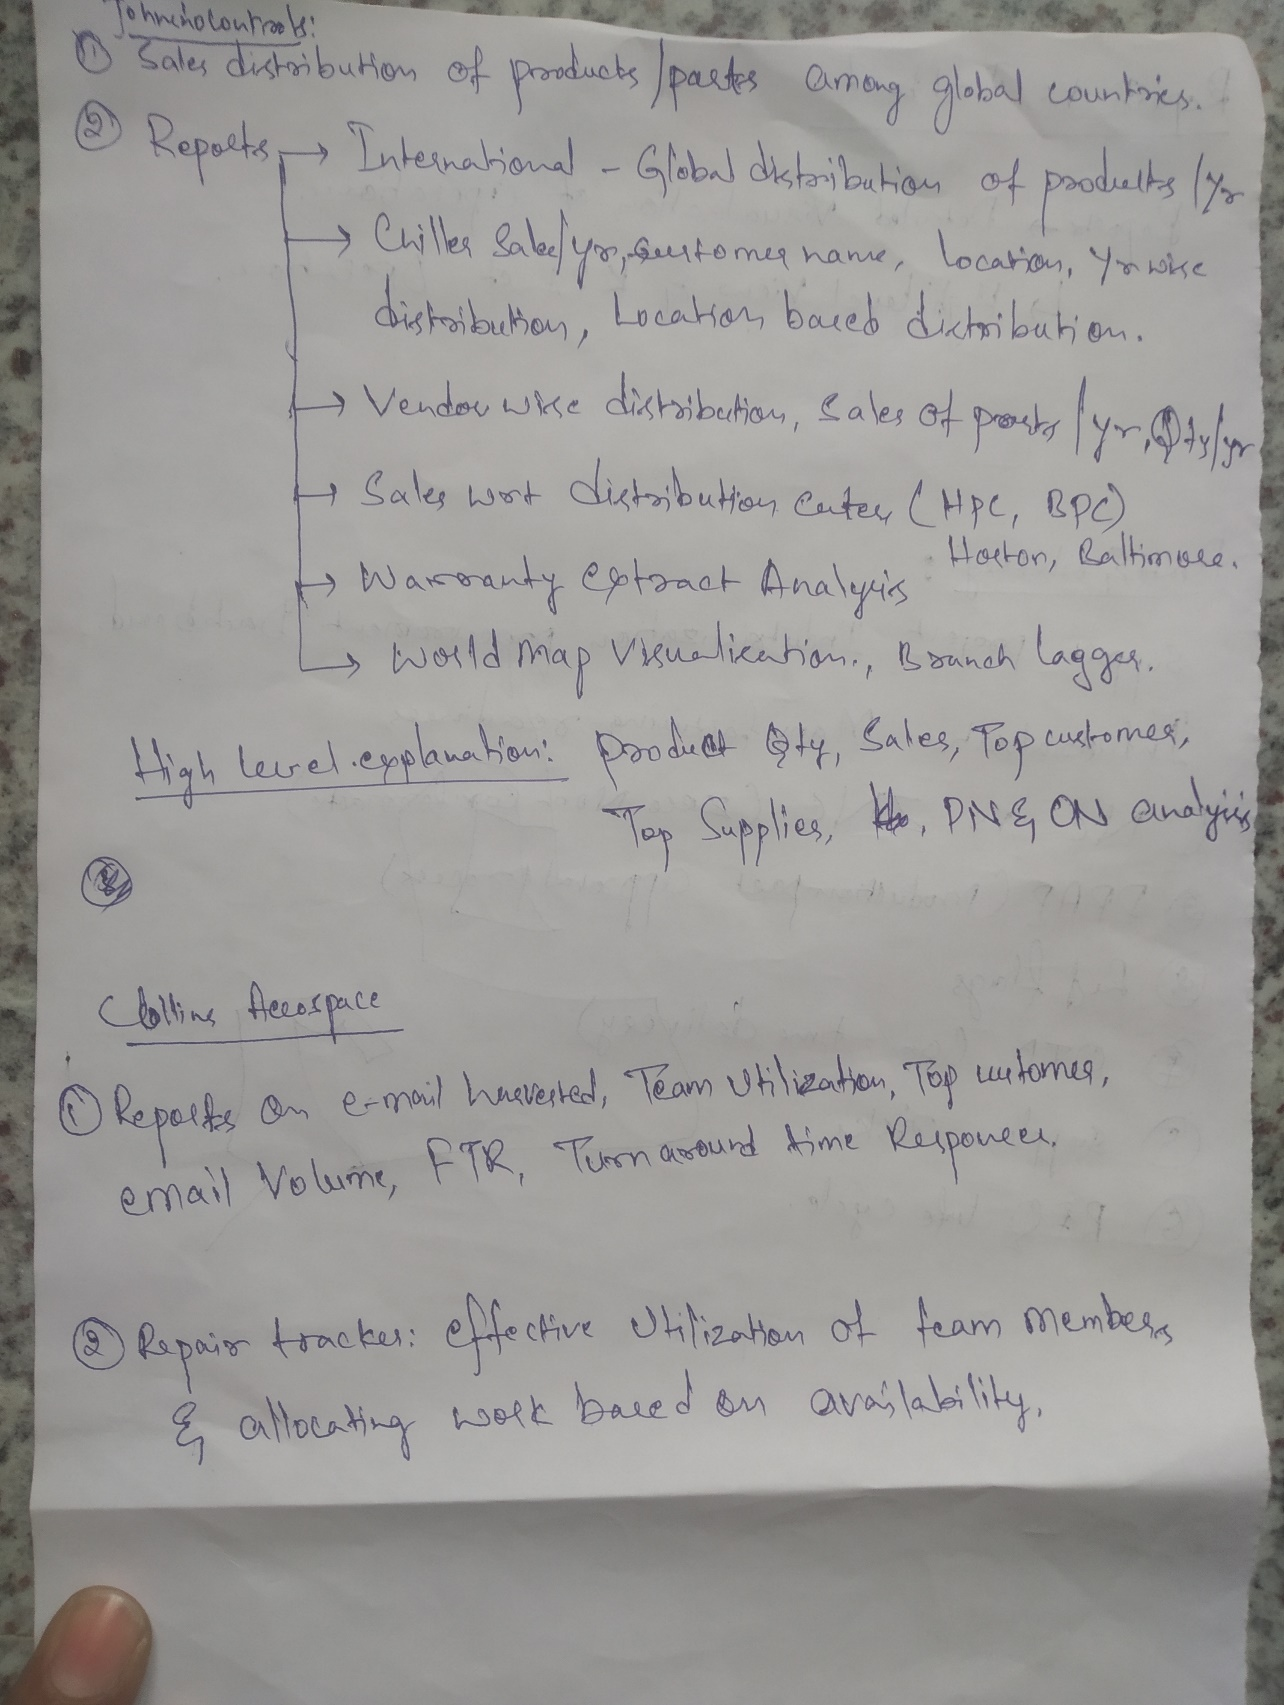 Johnsnocontrols:
① Sales distribution of products/parts among global countries.
② Reports → International - Global distribution of products /yr
→ Chiller Sales/yr, customer name, Location, Yr wise
distribution, Location based distribution.
→ Vendor wise distribution, Sales of parts /yr, Qty/yr
→ Sales wrt distribution Center (HPC, BPC)
Hoston, Baltimore.
→ Warranty extract Analysis
→ World Map Visualization., Branch lagger.
High level explanation: Product Qty, Sales, Top customer,
Top Supplies, , PN & ON analysis
Collins Aerospace
① Reports on e-mail harvested, Team Utilization, Top customer,
email Volume, FTR, Turn around time Responces.
② Repair tracker: effective Utilization of team members
& allocating work based on availability.